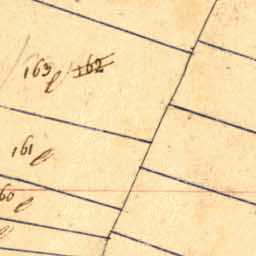 163 e 162
161 e
60 e
e